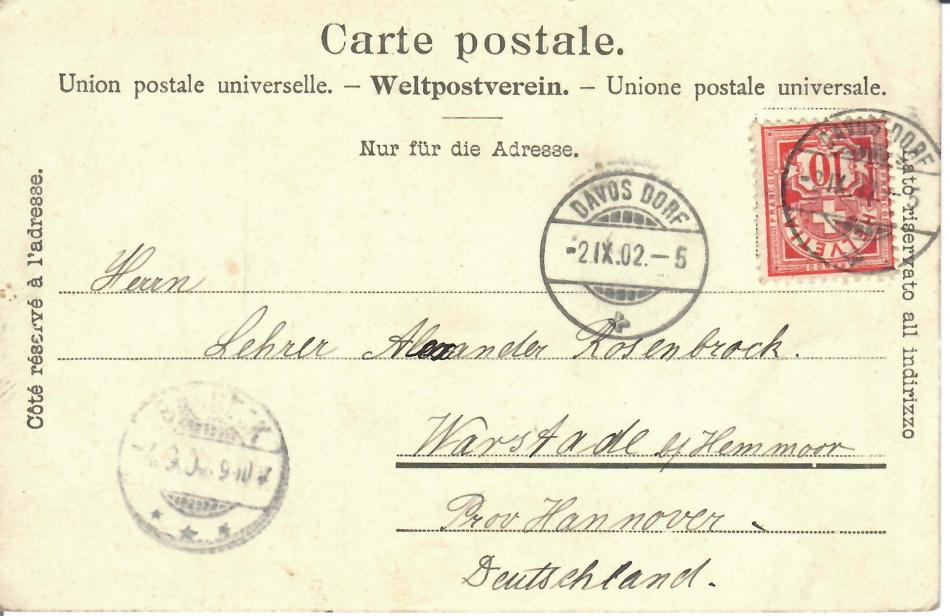 Carte postale.
Union postale universelle. — Weltpostverein. — Unione postale universale.
Nur für die Adresse.
Côté réservé à l'adresse.
lato riservato all indirizzo
DAVOS DORF
-2.IX.02.-5
DAVOS DORF
10
FRANCO
HELVETIA
Herrn
Lehrer Alexander Rosenbrock.
Warstade b/Hemmoor
Prov Hannover
Deutschland.